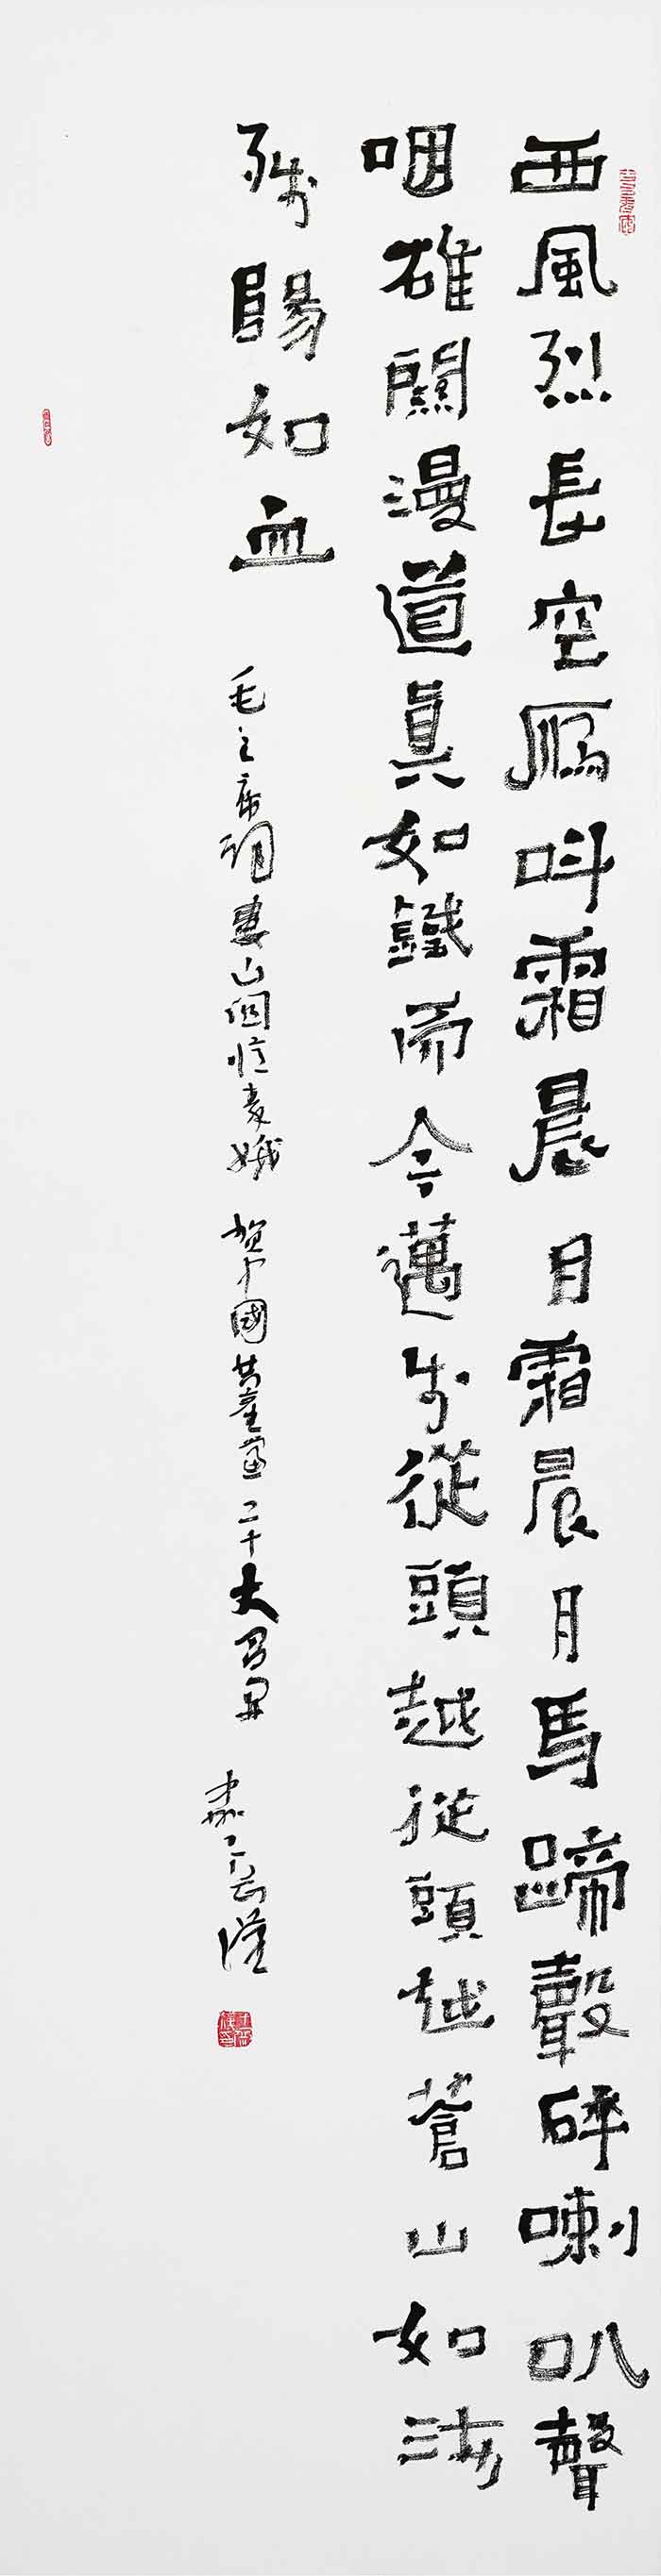 西風烈長空鴈叫霜晨月霜晨月馬蹄聲碎喇叭聲
咽雄關漫道真如鐵而今邁步從頭越從頭越蒼山如海
殘陽如血 毛主席詞婁山關憶秦娥 賀中國共產黨二十大召開